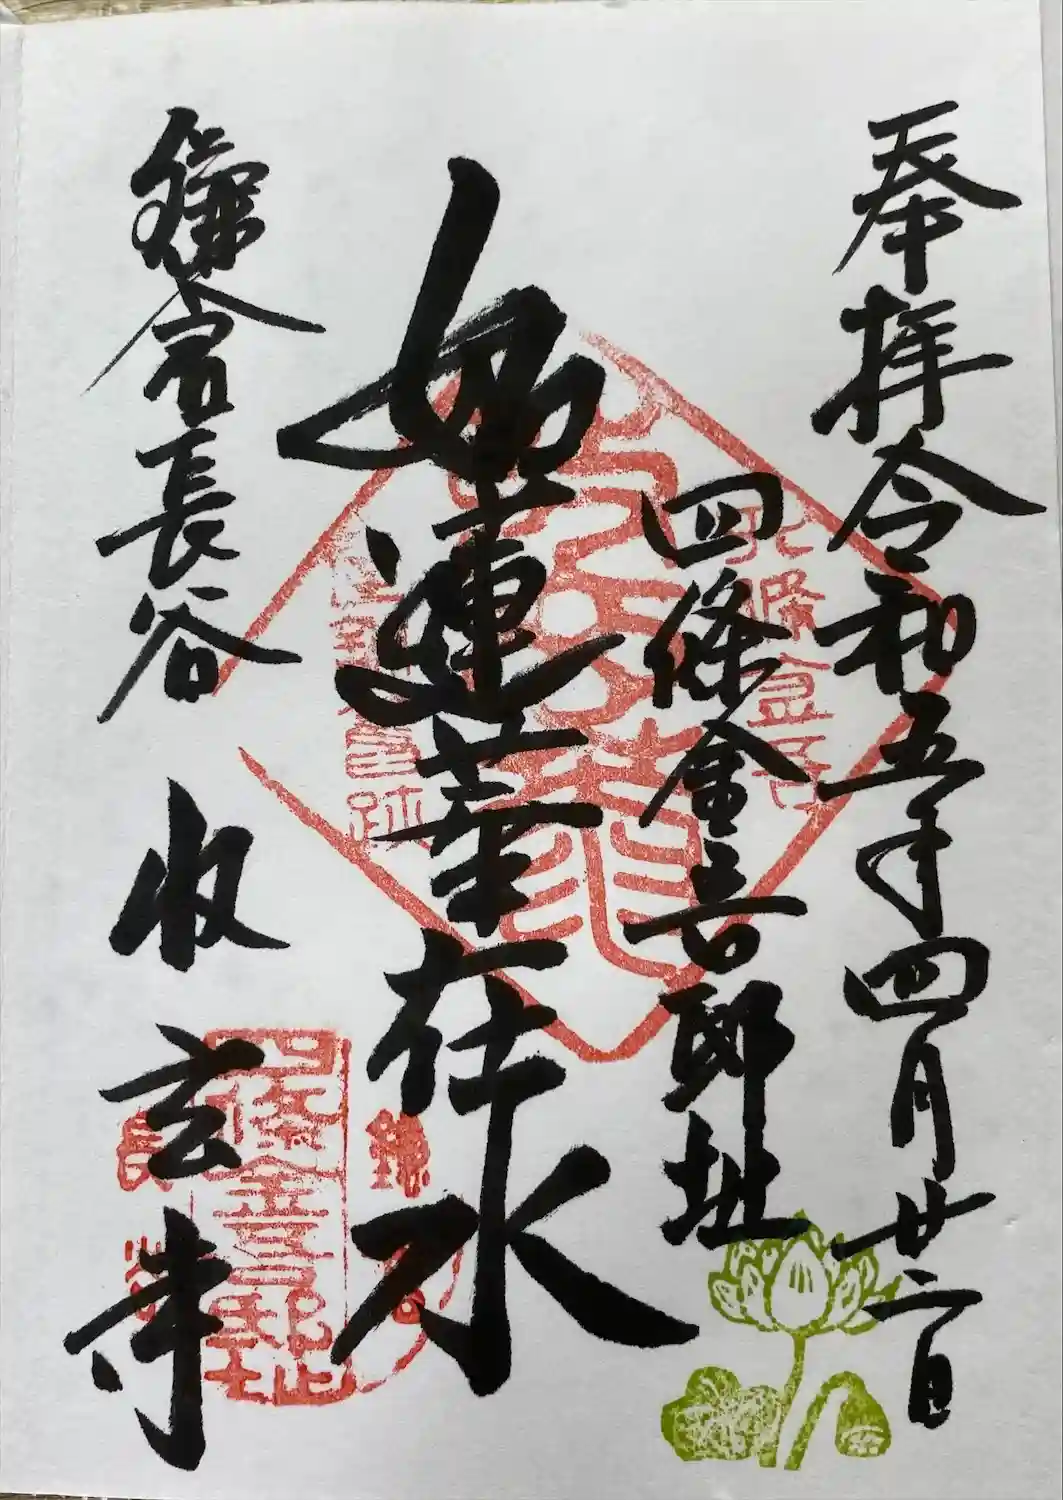 奉拝令和五年四月廿二日
四條金吾邸址
如蓮華在水
鎌倉長谷
收玄寺
四條金吾邸址